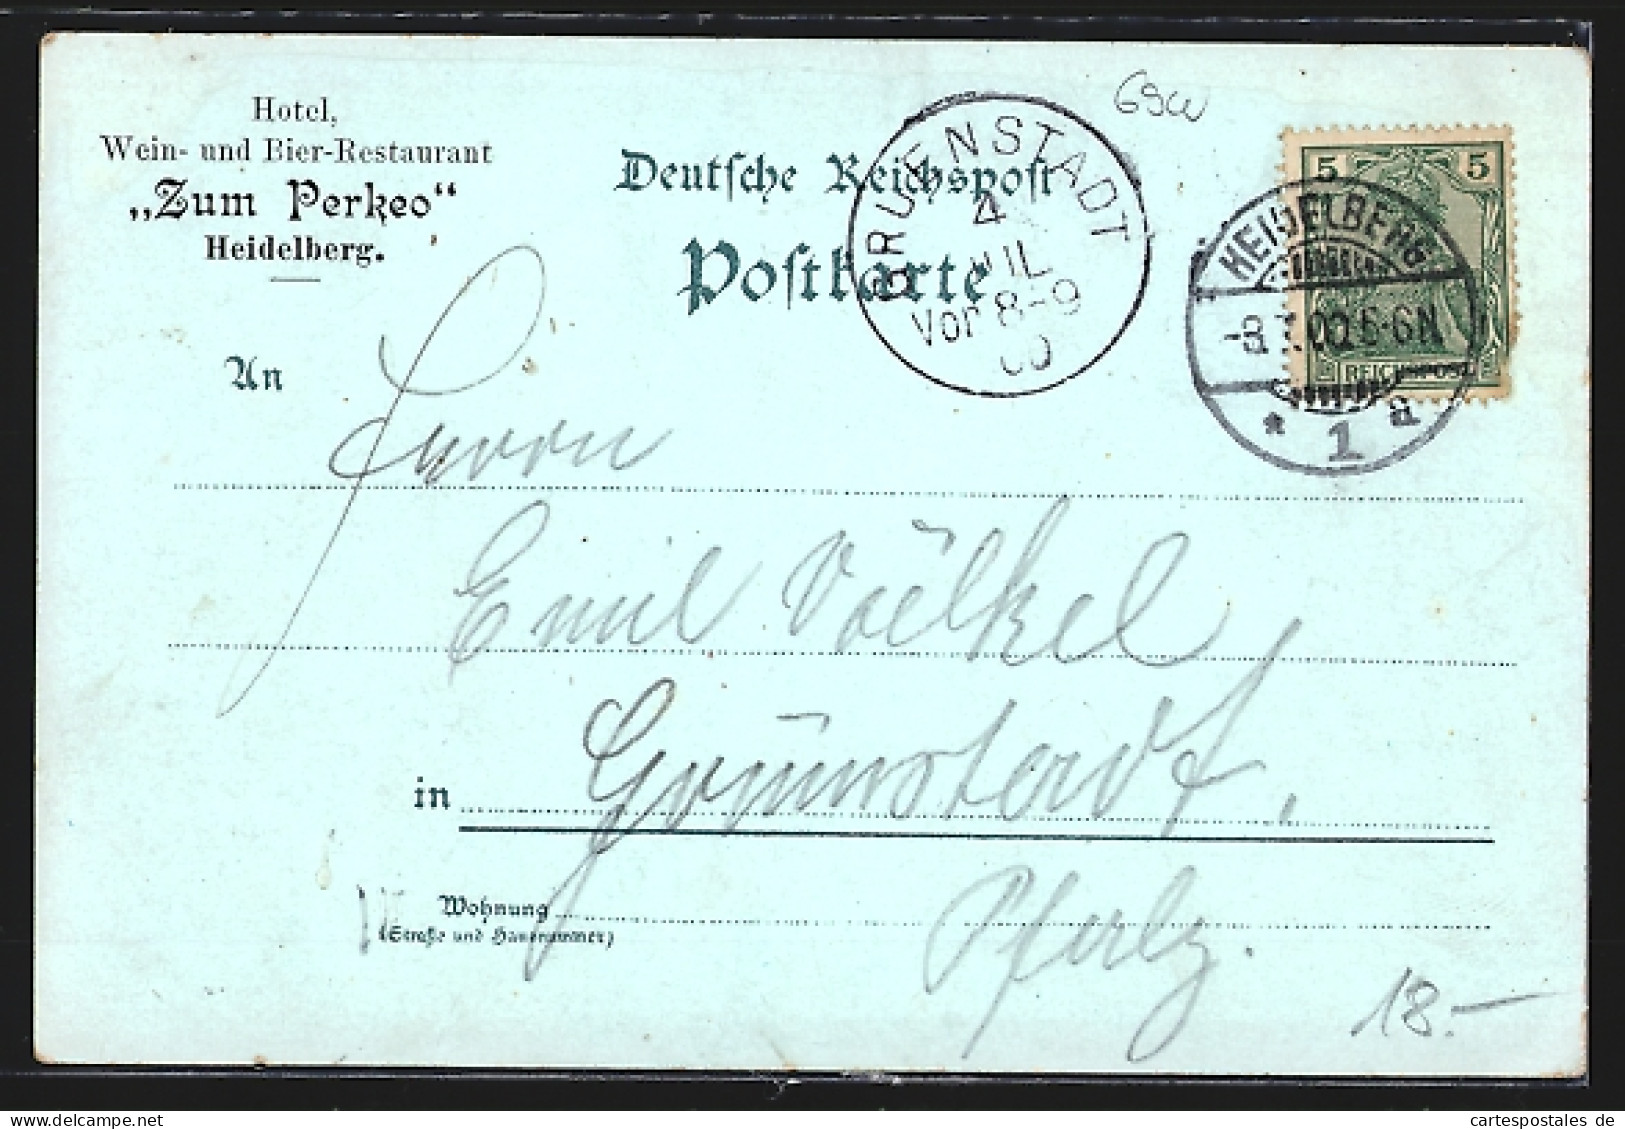 Hotel,
Wein- und Bier-Restaurant
„Zum Perkeo“
Heidelberg.
69w
Deutsche Reichspost
Postkarte
GRUENSTADT
4
JUL
Vor 8-9
00
5 5
REICHSPOST
HEIDELBERG
-3.7.00.5-6N
* 1 a
An
Herrn
Emil Völkel
in Grünstadt,
Wohnung
(Straße und Hausnummer)
Pfalz.
18.-
cartespostales de